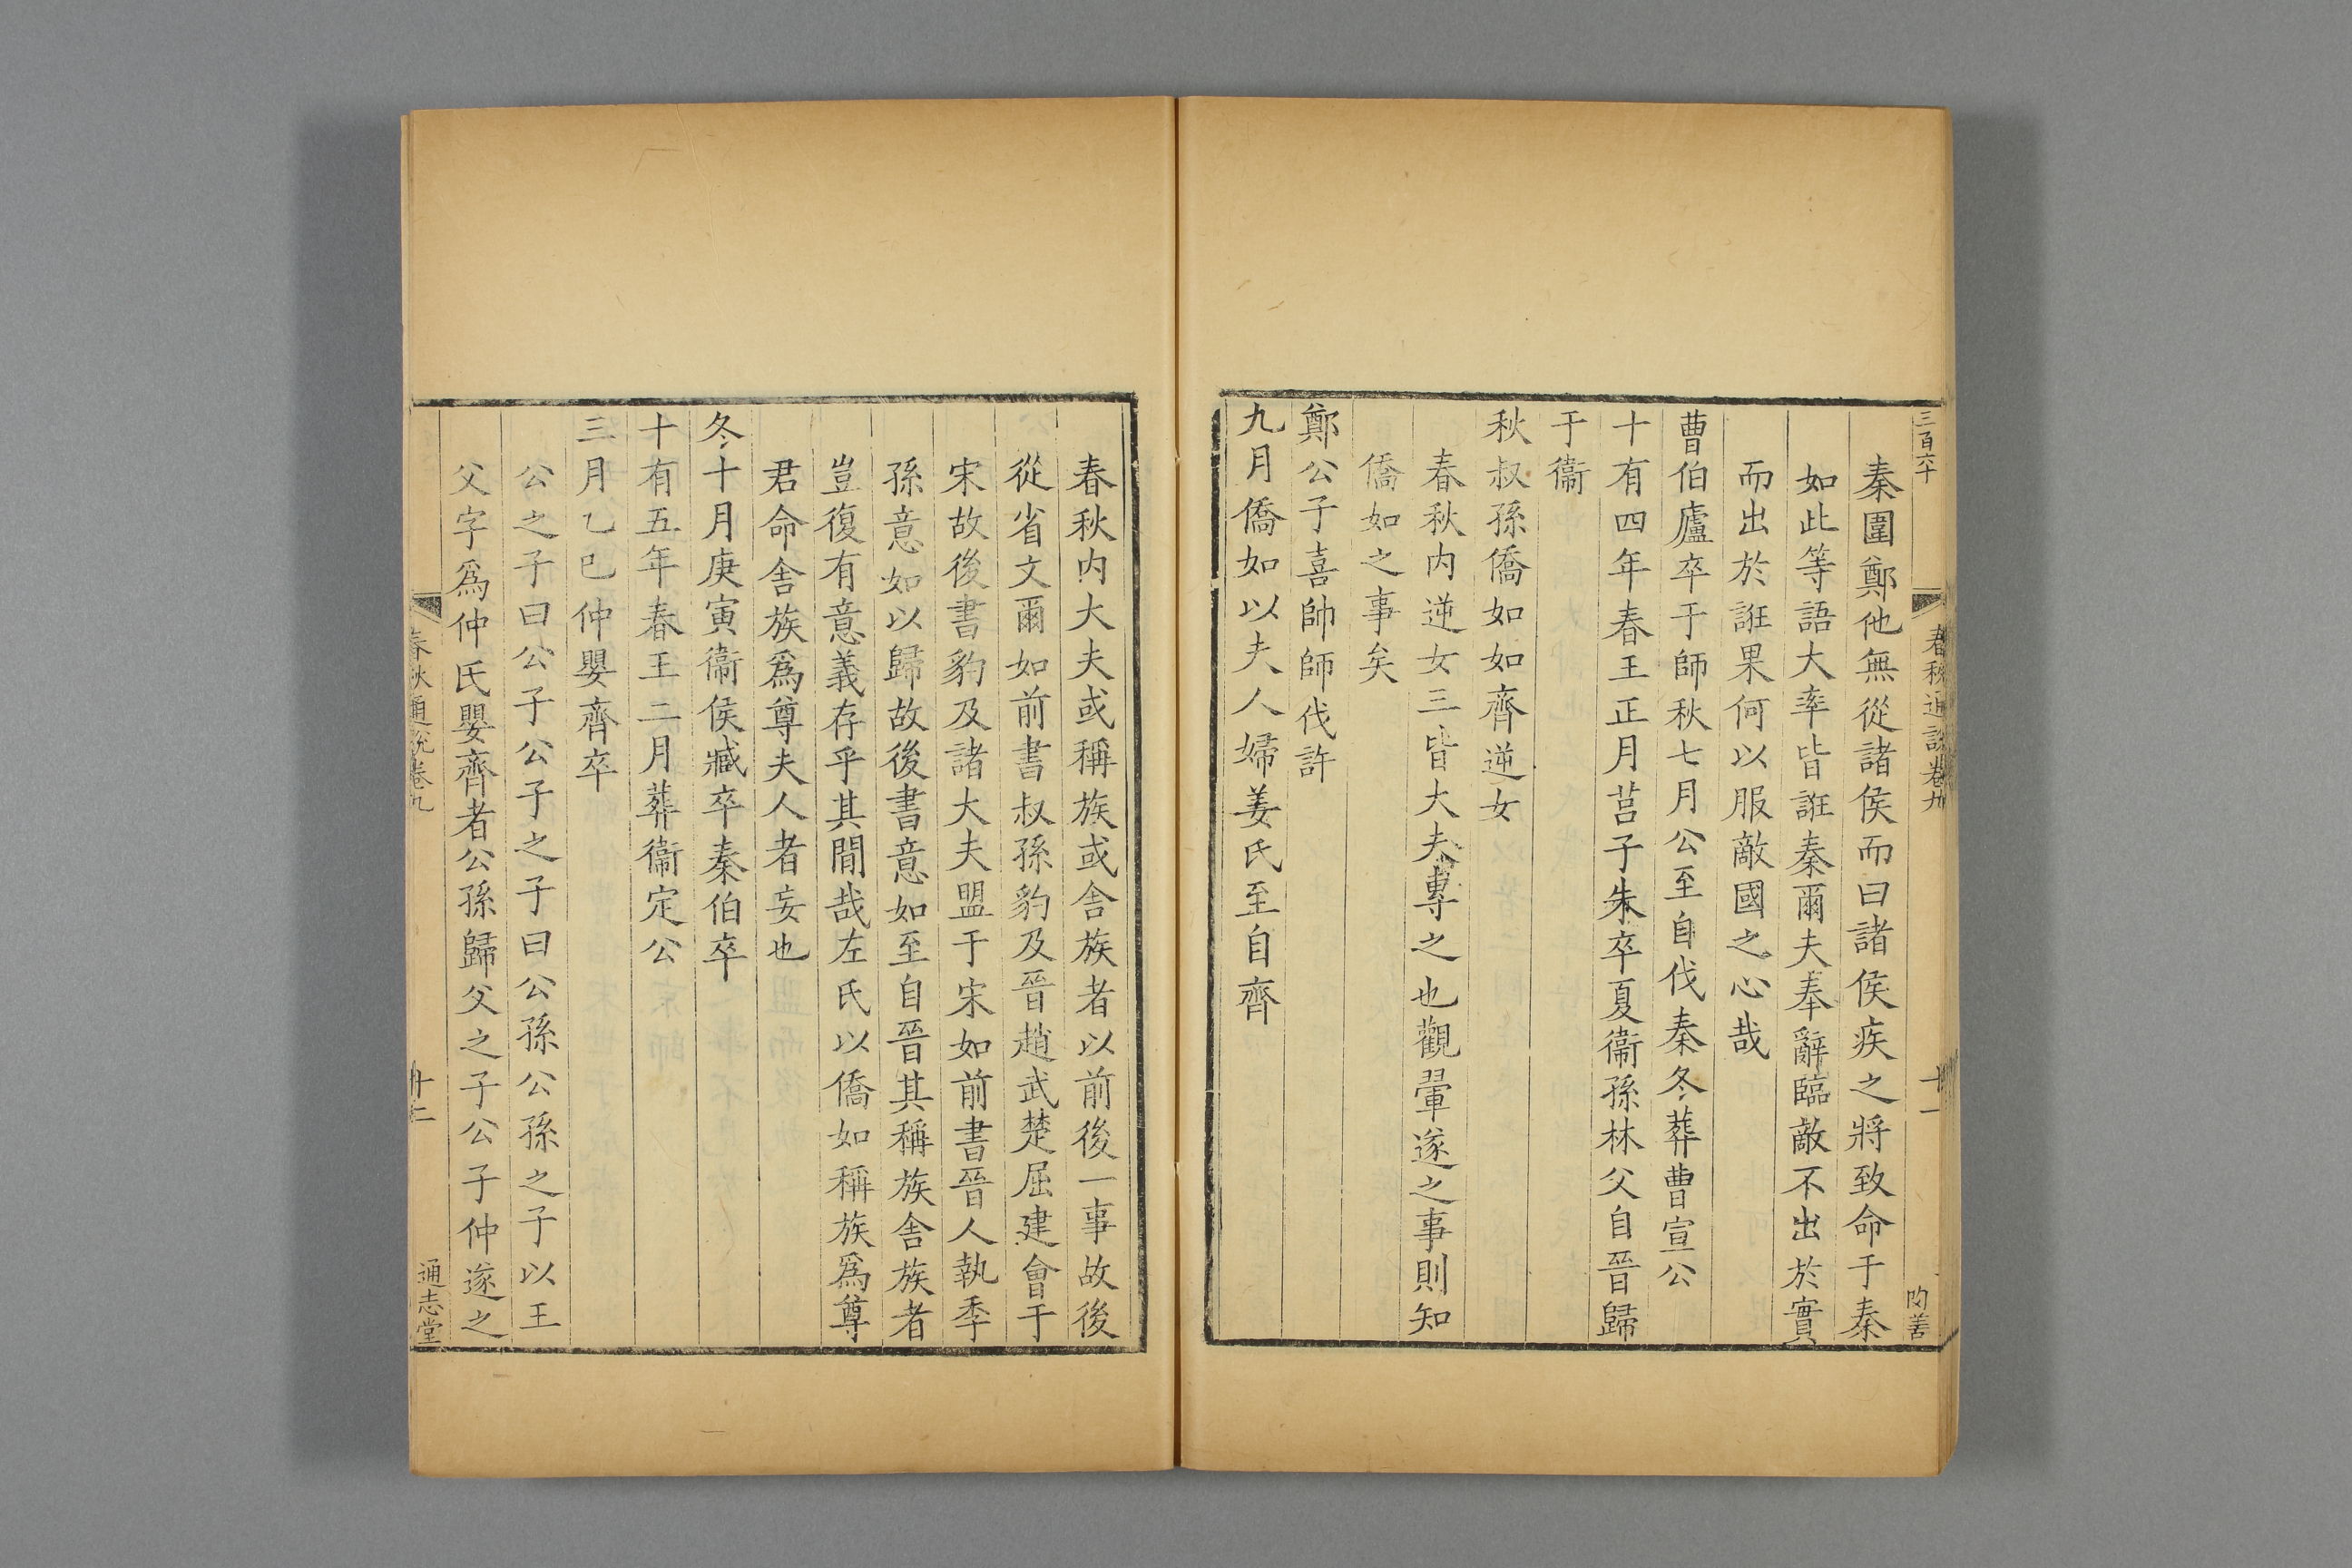 三百六十
春秋通說卷九
十一
秦圍鄭他無從諸侯而曰諸侯疾之將致命于秦
如此等語大率皆誑秦爾夫奉辭臨敵不出於實
而出於誑果何以服敵國之心哉
曹伯廬卒于師秋七月公至自伐秦冬葬曹宣公
十有四年春王正月莒子朱卒夏衞孫林父自晉歸
于衞
秋叔孫僑如如齊逆女
春秋内逆女三皆大夫專之也觀翬遂之事則知
僑如之事矣
鄭公子喜帥師伐許
九月僑如以夫人婦姜氏至自齊
春秋内大夫或稱族或舍族者以前後一事故後
從省文爾如前書叔孫豹及晉趙武楚屈建會于
宋故後書豹及諸大夫盟于宋如前書晉人執季
孫意如以歸故後書意如至自晉其稱族舍族者
豈復有意義存乎其間哉左氏以僑如稱族爲尊
君命舍族爲尊夫人者妄也
冬十月庚寅衞侯臧卒秦伯卒
十有五年春王二月葬衞定公
三月乙巳仲嬰齊卒
公之子曰公子公子之子曰公孫公孫之子以王
父字爲仲氏嬰齊者公孫歸父之子公子仲遂之
春秋通說卷九
通志堂